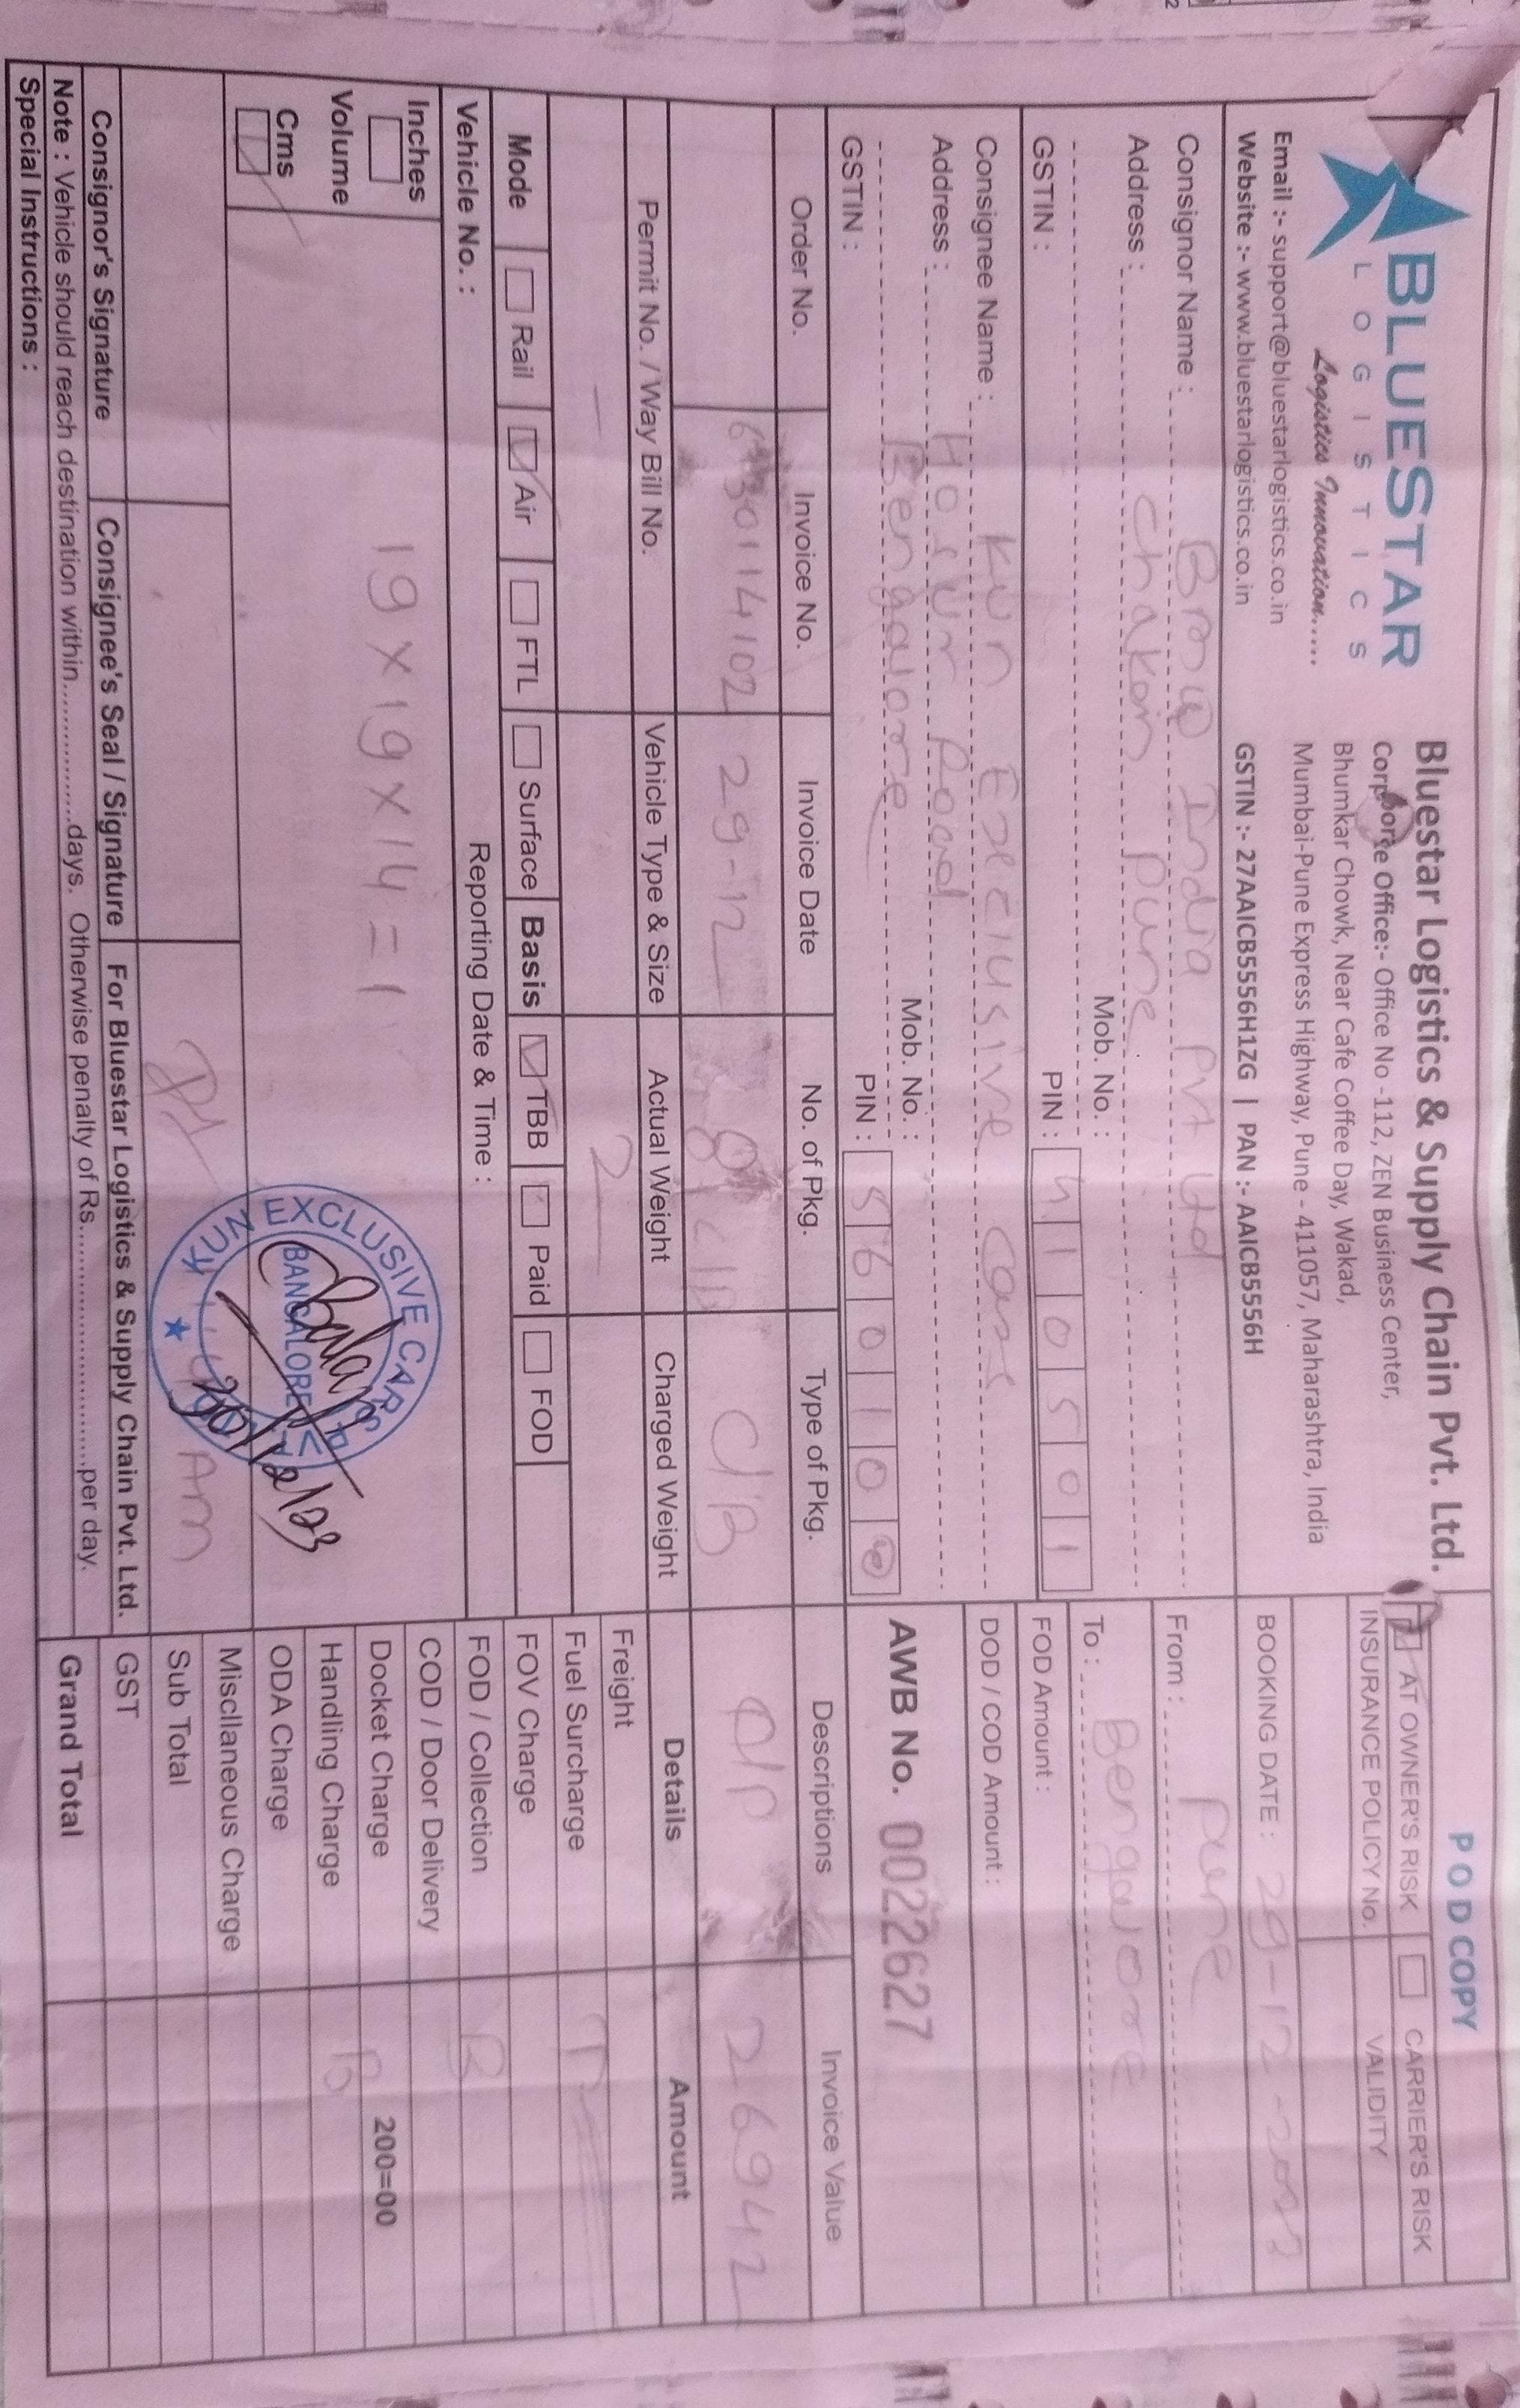 BLUESTAR
LOGISTICS
Logistics Innovation.....
Email :- support@bluestarlogistics.co.in
Website :- www.bluestarlogistics.co.in
Bluestar Logistics & Supply Chain Pvt. Ltd.
Corporate Office:- Office No -112, ZEN Business Center,
Bhumkar Chowk, Near Cafe Coffee Day, Wakad,
Mumbai-Pune Express Highway, Pune - 411057, Maharashtra, India
GSTIN :- 27AAICB5556H1ZG | PAN :- AAICB5556H
POD COPY
AT OWNER'S RISK CARRIER'S RISK
INSURANCE POLICY No. VALIDITY
BOOKING DATE : 29-12-2023
From : Pune
To : Bengalore
FOD Amount :
DOD / COD Amount :
AWB No. 0022627
Consignor Name : BMW India Pvt Ltd
Address : chakan pune
Mob. No. :
GSTIN : PIN : 410501
Consignee Name : Kun Exclusive Cars
Address : Hosur Road
Bengalore Mob. No. :
GSTIN : PIN : 56010
Order No. Invoice No. Invoice Date No. of Pkg. Type of Pkg. Descriptions Invoice Value
30114102 29-12 C/B 26942
Permit No. / Way Bill No. Vehicle Type & Size Actual Weight Charged Weight Details Amount
— 2
Mode Rail Air FTL Surface Basis TBB Paid FOD
Vehicle No. : Reporting Date & Time :
Inches
Volume
Cms
19 x 19 x 14 = 1
KUN EXCLUSIVE CARS PVT
BANGALORE
Balaji
30/12/23
AM
Freight
Fuel Surcharge T
FOV Charge
FOD / Collection B
COD / Door Delivery
Docket Charge 200=00
Handling Charge B
ODA Charge
Miscllaneous Charge
Sub Total
GST
Grand Total
Consignor's Signature Consignee's Seal / Signature For Bluestar Logistics & Supply Chain Pvt. Ltd.
Note : Vehicle should reach destination within.................days. Otherwise penalty of Rs.............................per day.
Special Instructions :